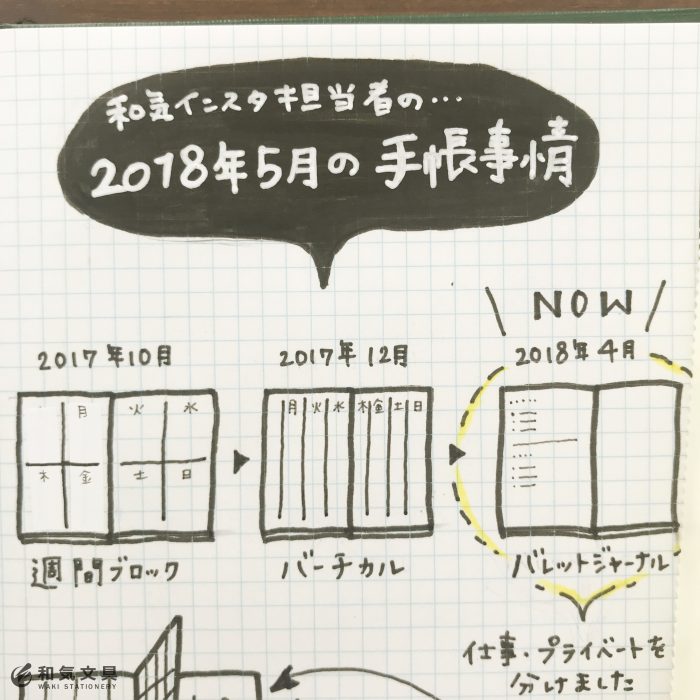 和気インスタ担当者の…
2018年5月の手帳事情
NOW
2017年10月
2017年12月
2018年4月
月 火 水
木 金 土 日
月 火 水 木 金 土 日
週間ブロック
バーチカル
バレットジャーナル
仕事・プライベートを
分けました
和気文具
WAKI STATIONERY